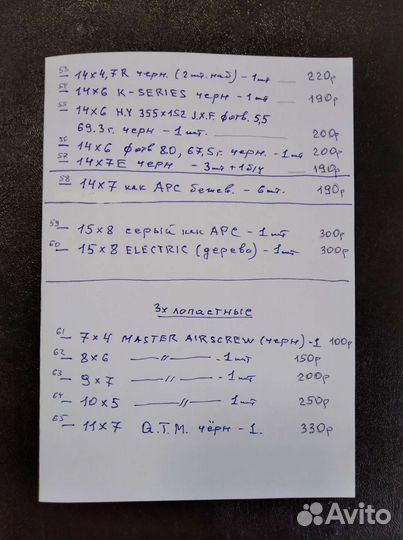 53 14x4,7R черн. (2 шт. наб) - 1 шт 220р
54 14x6 K-SERIES черн - 1 шт 190р
55 14x6 H.Y 355x152 J.X.F. фотв. 5,5
69.3г. черн - 1 шт. 200р
56 14x6 фотв 8.0, 67,5г. черн. - 1 шт 200р
57 14x7E черн - 3 шт + 1 б/у 190р
58 14x7 как APC бежев. - 6 шт. 190р
59 15x8 серый как APC - 1 шт 300р
60 15x8 ELECTRIC (дерево) - 1 шт 300р
3х лопастные
61 7x4 MASTER AIRSCREW (черн) - 1 100р
62 8x6 —〃— - 1 шт 150р
63 9x7 —〃— - 1 шт 200р
64 10x5 —〃— - 1 шт 250р
65 11x7 Q.T.M. чёрн - 1. 330р
Avito